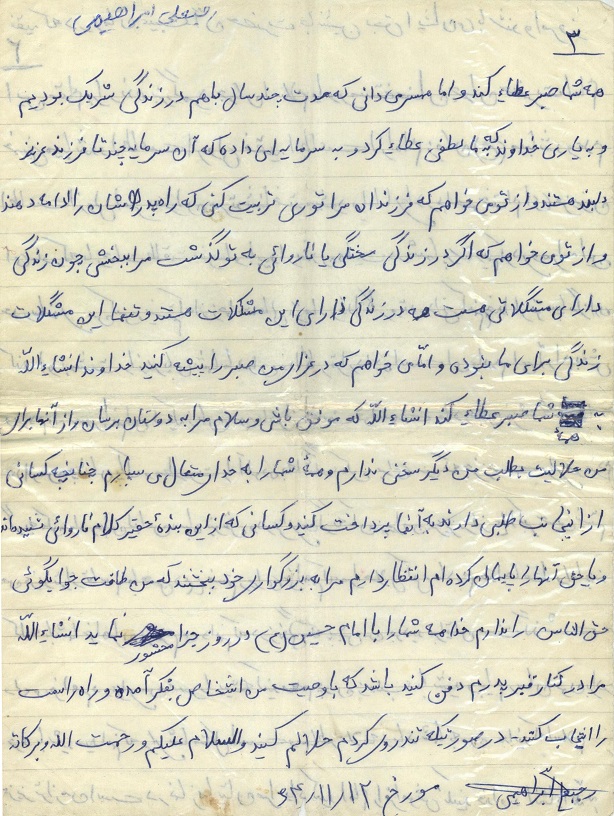 ۳
همه شما صبر عطاء کند و اما همسرم می دانی که مدت چند سال با هم در زندگی شریک بودیم
و به یاری خداوند که به ما لطفی عطاء کرد و به سرمایه ای داده که آن سرمایه چند تا فرزند عزیز
دلبند هستند و از تو می خواهم که فرزندان مرا توری تربیت کنی که راه پدرشان را ادامه دهند
و از تو می خواهم که اگر در زندگی سختگی یا ناروائی به تو گذشت مرا ببخشی چون زندگی
دارای مشگلاتی هست همه در زندگی دارای این مشکلات هستند و تنها این مشگلات
زندگی برای ما نبودی و امّا می خواهم که در عزای من صبر را پیشه کنید خداوند انشاءاللّه
به همه شما صبر عطاء کند انشاءاللّه که موفق باشی و سلام مرا به دوستان برسان و از آنها برای
من حلالیت بطلب من دیگر سخنی ندارم و همۀ شما را به خدای متعال می سپارم چنانچه کسانی
از اینجانب طلبی دارند به آنها پرداخت کنید و کسانی که از این بندۀ حقیر کلام ناروائی شنیده‌اند
و یا حق آنها را پایمال کرده ام انتظار دارم مرا به بزرگواری خود ببخشند که من طاقت جوابگوئی
حق الناس را ندارم خدا همه شما را با امام حسین (ع) در روز جزا محشور نماید انشاءاللّه
مرا در کنار قبر پدرم دفن کنید باشد که با وصیت من اشخاص بفکر آمده و راه راست
را انتخاب کنند. در صورتیکه تندروی کردم حلالم کنید والسلام علیکم و رحمت الله و برکاته
ابراهیمی مورخ ۶۴/۱۱/۱۲